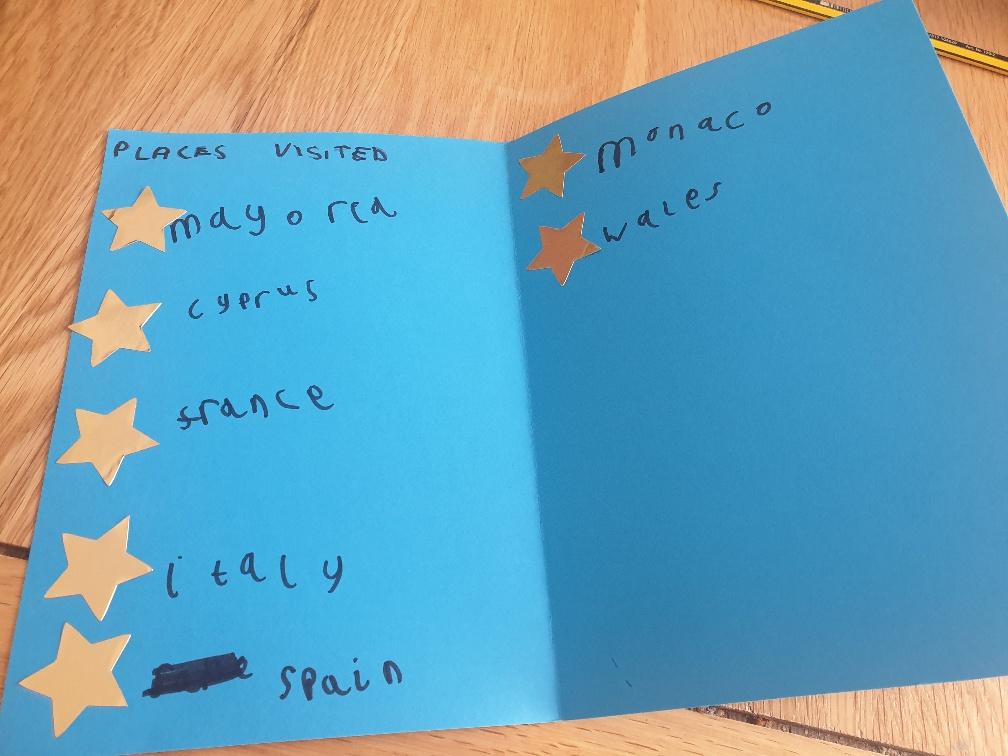 PLACES VISITED
mayorca
cyprus
france
italy
spain
monaco
wales